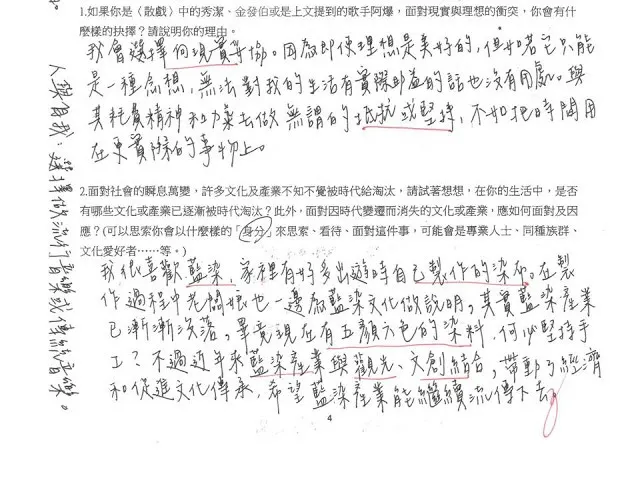 1.如果你是〈散戲〉中的秀潔、金發伯或是上文提到的歌手阿爆，面對現實與理想的衝突，你會有什
麼樣的抉擇？請說明你的理由。
我會選擇向現實妥協。因為即使理想是美好的，但如若它只能
是一種念想，無法對我的生活有實際助益的話也沒有用處。與
其耗費精神和力氣去做無謂的抵抗或堅持，不如把時間用
在更實際的事物上。
人與自我：選擇做流行音樂或傳統音樂。
2.面對社會的瞬息萬變，許多文化及產業不知不覺被時代給淘汰，請試著想想，在你的生活中，是否
有哪些文化或產業已逐漸被時代淘汰？此外，面對因時代變遷而消失的文化或產業，應如何面對及因
應？(可以思索你會以什麼樣的「身分」來思索、看待、面對這件事，可能會是專業人士、同種族群、
文化愛好者……等。)
我很喜歡藍染，家裡有好多出遊時自己製作的染布。在製
作過程中老闆娘也一邊為藍染文化做說明，其實藍染產業
已漸漸沒落，畢竟現在有五顏六色的染料，何必堅持手
工？不過近年來藍染產業與觀光、文創結合，帶動了經濟
和促進文化傳承，希望藍染產業能繼續流傳下去。
4